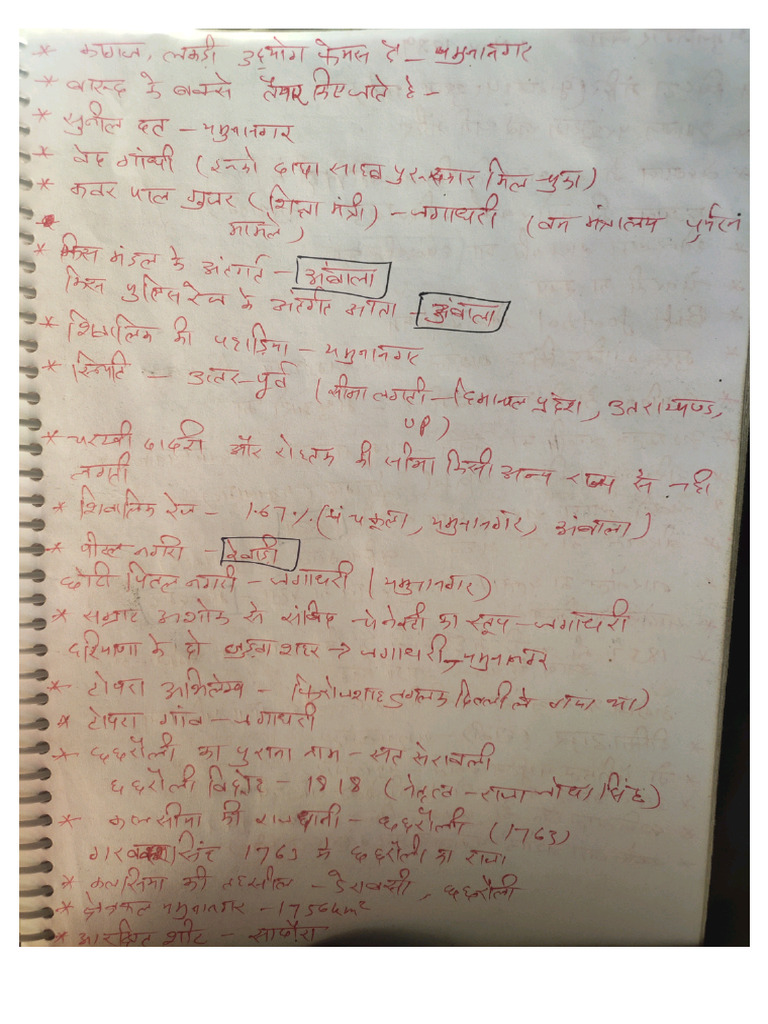 * कागज, लकड़ी उद्योग फेमस है – यमुनानगर
* बारूद के बक्से तैयार किए जाते है –
* सुनील दत्त – यमुनानगर
* वेद गांधी (इनको दादा साहब पुरस्कार मिल चुका)
* कवर पाल गुजर (शिक्षा मंत्री) – जगाधरी (वन मंत्रालय पर्यटन
* मामले)
* किस मंडल के अंतर्गत – अंबाला
किस पुलिस रेंज के अंतर्गत आता – अंबाला
* शिवालिक की पहाड़िया – यमुनानगर
* स्थिति – उत्तर-पूर्व (सीमा लगती – हिमाचल प्रदेश, उतराखण्ड,
UP)
* चरखी दादरी और रोहतक की सीमा किसी अन्य राज्य से नही
लगती
* शिवालिक रेंज – 1.67% (पंचकूला, यमुनानगर, अंबाला)
* पीतल नगरी – रेवाड़ी
छोटी पितल नगरी – जगाधरी (यमुनानगर)
* सम्राट अशोक से संबंधित – चेनेटी का स्तूप – जगाधरी
हरियाणा के दो जुड़वा शहर → जगाधरी, यमुनानगर
* टोपरा अभिलेख – फिरोजशाह तुगलक दिल्ली ले गया था)
* टोपरा गांव – जगाधरी
* छछरौली का पुराना नाम – सत सेरावली
छछरौली विद्रोह – 1818 (नेतृत्व – राजा जोधा सिंह)
* कलसीया की राजधानी – छछरौली (1763)
सिंह 1763 मे छछरौली का राजा
* कलसिया की तहसील – डेराबसी, छछरौली
* क्षेत्रफल यमुनानगर – 1756 km²
* आरक्षित सीट – साढौरा